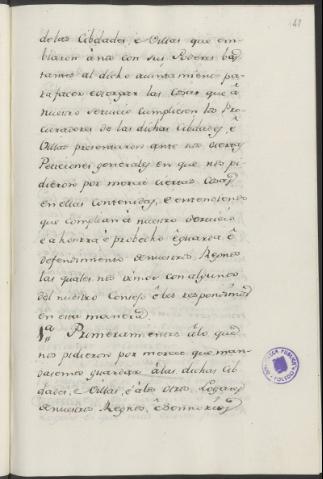 41
de las Cibdades, e Villas que em-
biaron à nos con sus Poderes bas-
tantes al dicho ayuntamiento pa-
ra facer e otorgar las Cosas que à
nuestro servicio cumpliesen los Pro-
curadores de las dichas Cibdades, ê
Villas presentaron ante nos ciertas
Peticiones generales en que nos pi-
dieron por merced ciertas Cosas
en ellas contenidas, e entendiendo
que complian à nuestro servicio
e a honrra è probecho è guarda ê
defendimiento de nuestros Regnos
las quales nos vimos con algunos
del nuestro Consejo ê les respondimos
en esta manera.
1ª Primeramente à lo que
nos pidieron por merced que man-
dasemos guardar à las dichas Cib-
dades, e Villas, è à los otros Logares
de nuestros Regnos, è Sennorios
TOLEDO